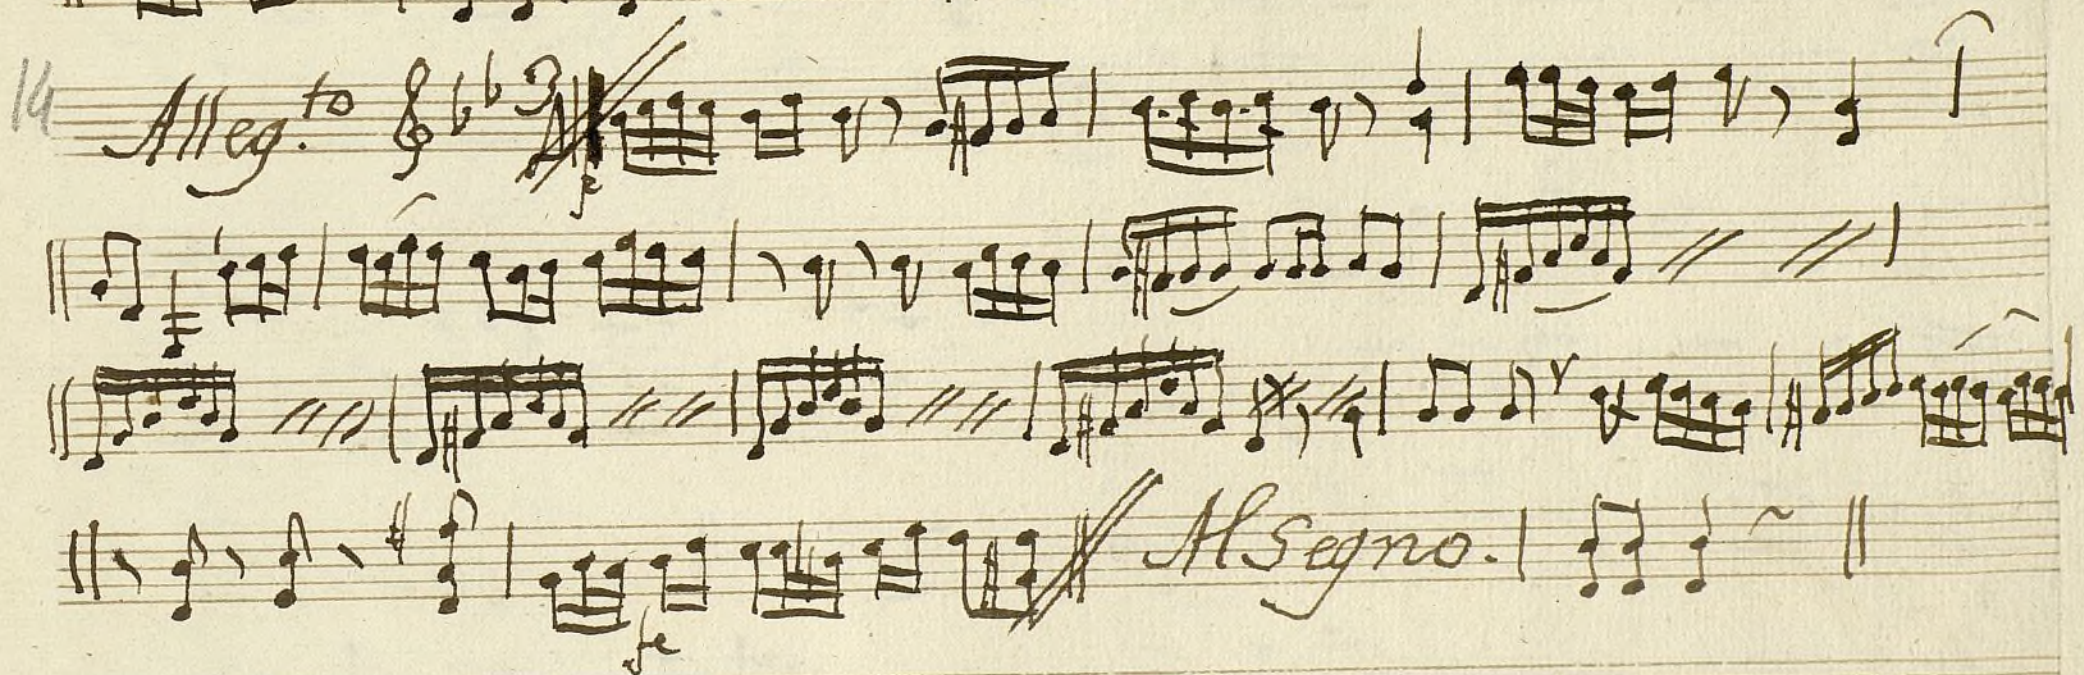 14
Alleg.to 3
p
fe
Al Segno.